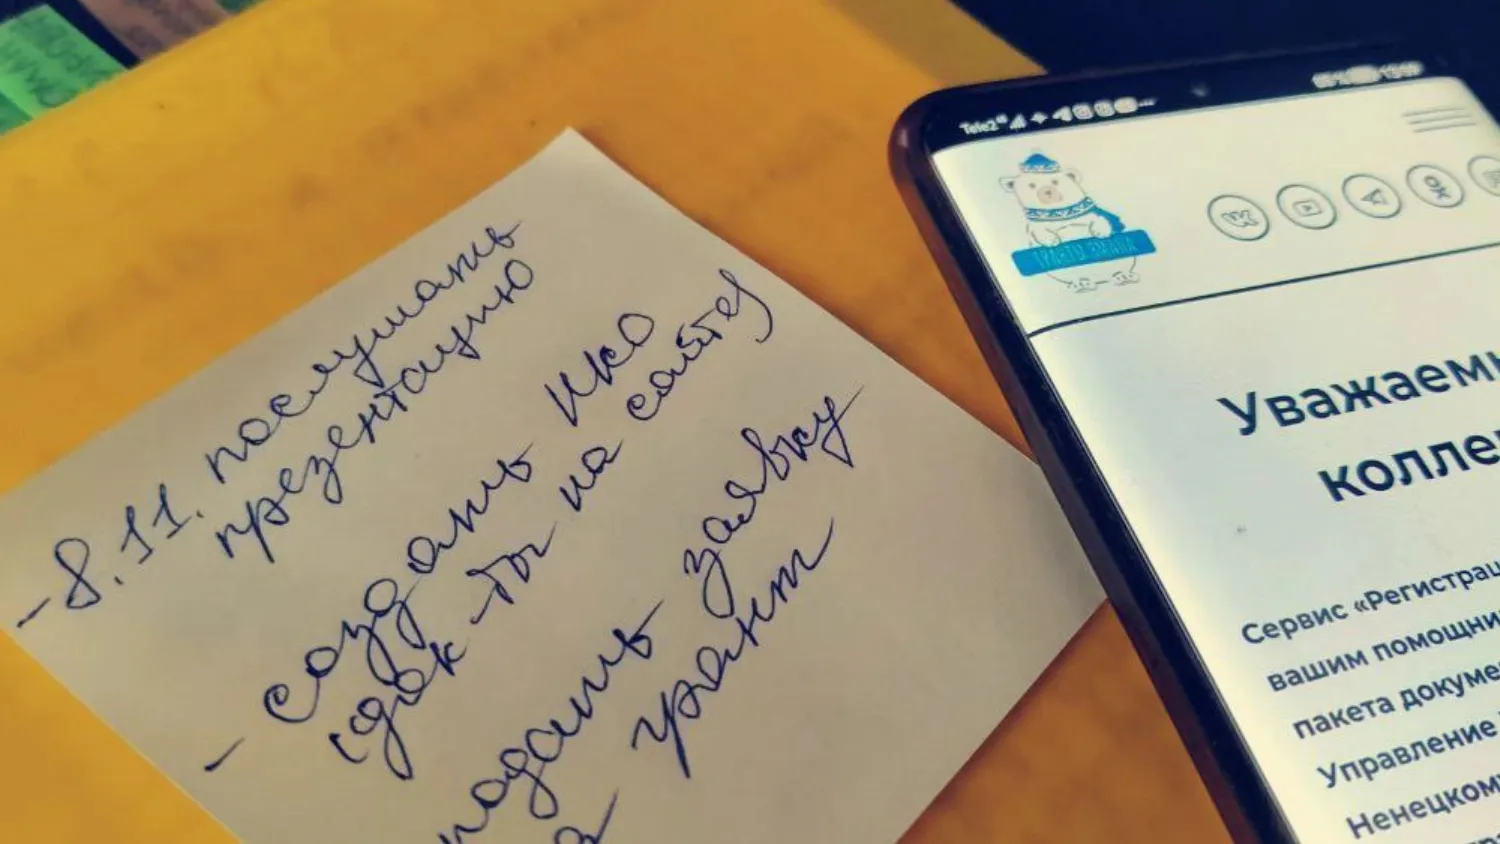 - 8.11. послушать
презентацию
- создать НКО
(док-ты на сайте)
подать заявку
грант
Tele2
Уважаемы
колле
Сервис «Регистрац
вашим помощни
пакета докуме
Управление
Ненецком